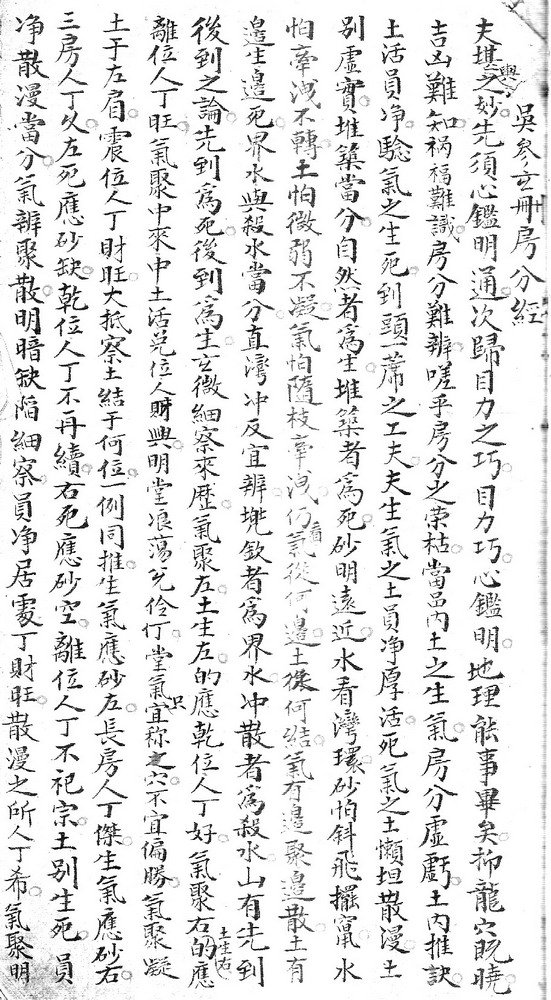 吳參玄冊房分經
夫堪輿之妙先須心鑑明通次歸目力之巧目力巧心鑑明地理能事畢矣抑龍穴既曉
吉凶難知祸福難識房分難辨嗟乎房分之荣枯當昷內土之生氣房分虛虧土內推訣
土活員净驗氣之生死到頭一蓆之工夫夫生氣之土員净厚活死氣之土懶坦散漫土
別虛實堆築當分自然者為生堆築者為死砂明遠近水看灣環砂怕斜飛擺竄水
怕牽洩不轉土怕微弱不凝氣怕隨枝牽洩仍看氣從何邉土從何結氣有邉聚邉散土有
邉生邉死界水與殺水當分直灣冲反宜辨兠欽者為界水冲散者為殺水山有先到
後到之論先到為死後到為生玄微細察來歷氣聚左土生左的應乾位人丁好氣聚右土生右的應
離位人丁旺氣聚中來中土活兑位人財興明堂浪蕩兑伶仃堂氣只宜称之穴不宜偏勝氣聚凝
土于左肩震位人丁財旺大抵察土結于何位一例同推生氣應砂左長房人丁傑生氣應砂右
三房人丁久左死應砂缺乾位人丁不再續右死應砂空離位人丁不祀宗土别生死員
净散漫當分氣辨聚散明暗缺陷細察員净居處丁財旺散漫之所人丁希氣聚明